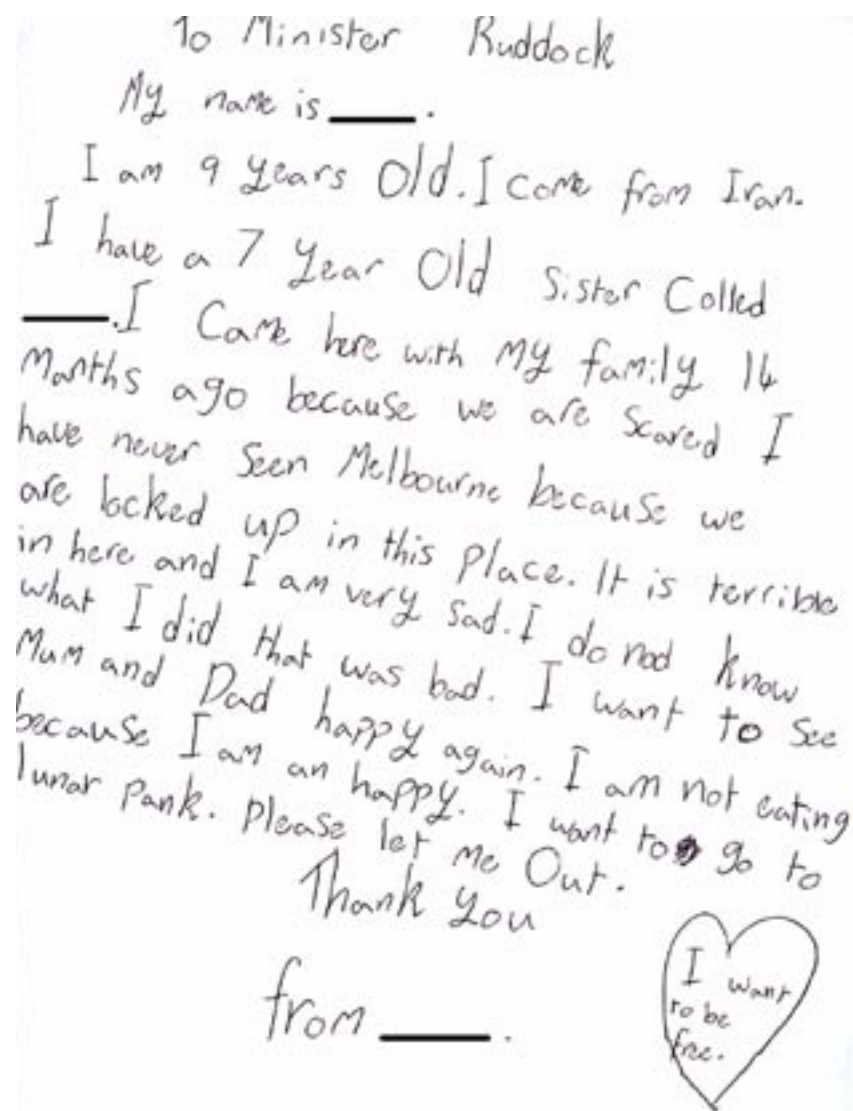 To Minister Ruddock
My name is ____.
I am 9 years Old. I come from Iran.
I have a 7 Year Old Sister Colled
____. I Came here with my family 14
Months ago because we are scared I
have never Seen Melbourne because we
are locked up in this place. It is terrible
in here and I am very sad. I do nod know
what I did that was bad. I want to see
Mum and Dad happy again. I am not eating
because I am an happy. I want to go to
lunar Pank. Please let me Out.
Thank You
from ____.
I want
to be
free.